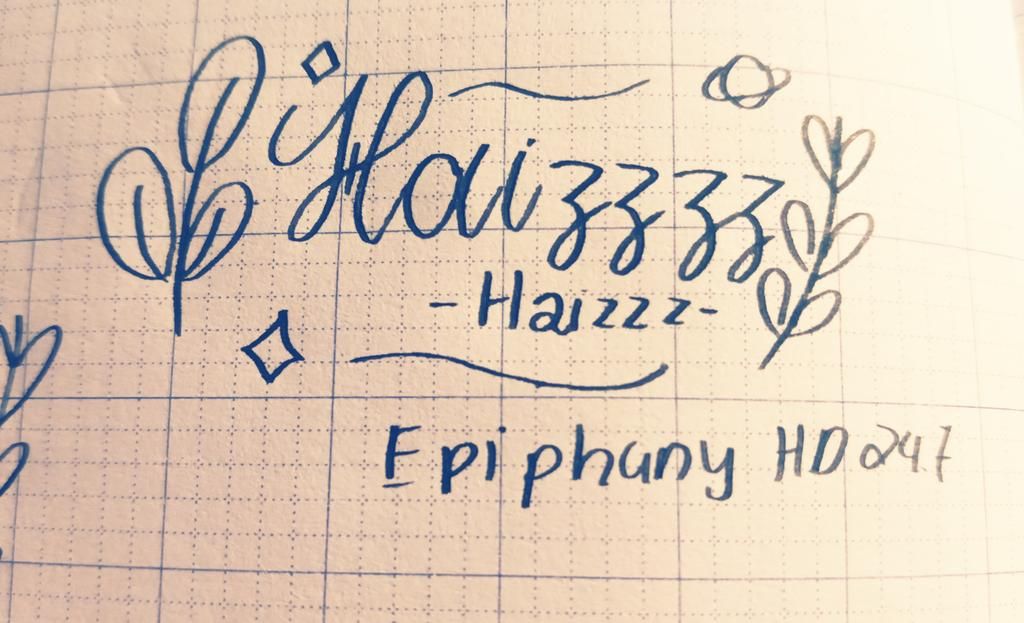 Haizzzz
-Haizzz-
Epiphany HD247